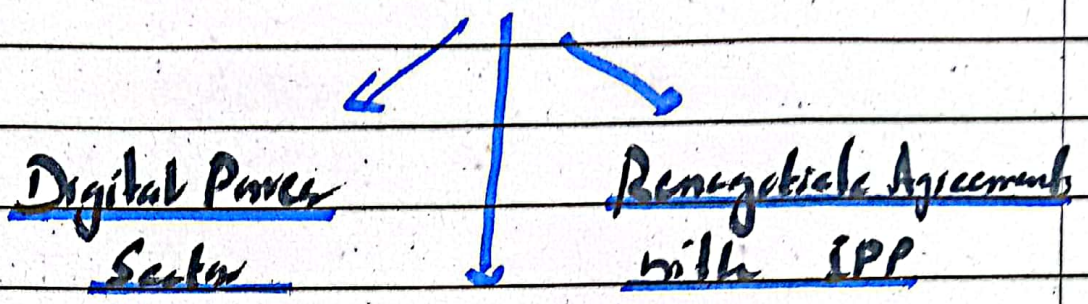 Digital Power
Sector
Renegotiate Agreements
with IPP